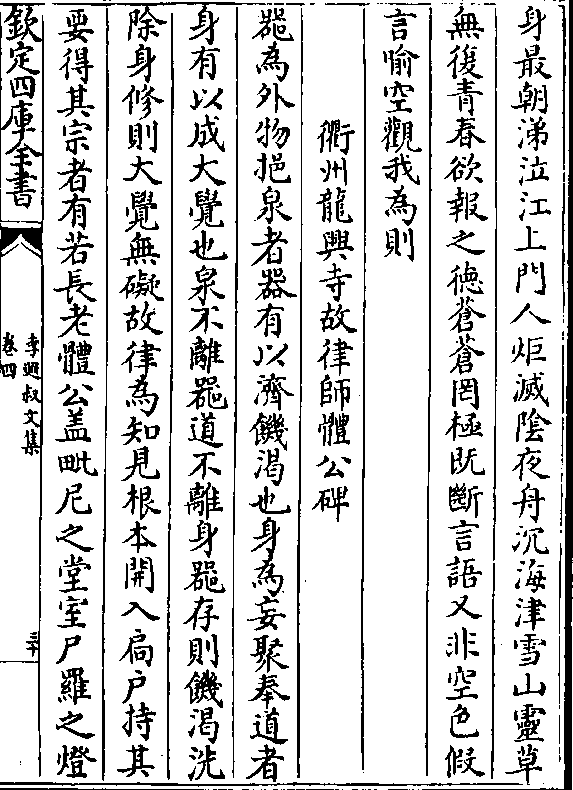 身最朝涕泣江上門人炬滅陰夜舟沉海津雪山靈草
無復青春欲報之徳蒼蒼罔極既斷言語又非空色假
言喻空觀我為則
衢州龍興寺故律師體公碑
器為外物挹泉者器有以濟饑渴也身為妄聚奉道者
身有以成大覺也泉不離器道不離身器存則饑渴洗
除身修則大覺無礙故律為知見根本開入扃户持其
要得其宗者有若長老體公蓋毗尼之堂室尸羅之燈
欽定四庫全書
李遐叔文集
卷四
三十